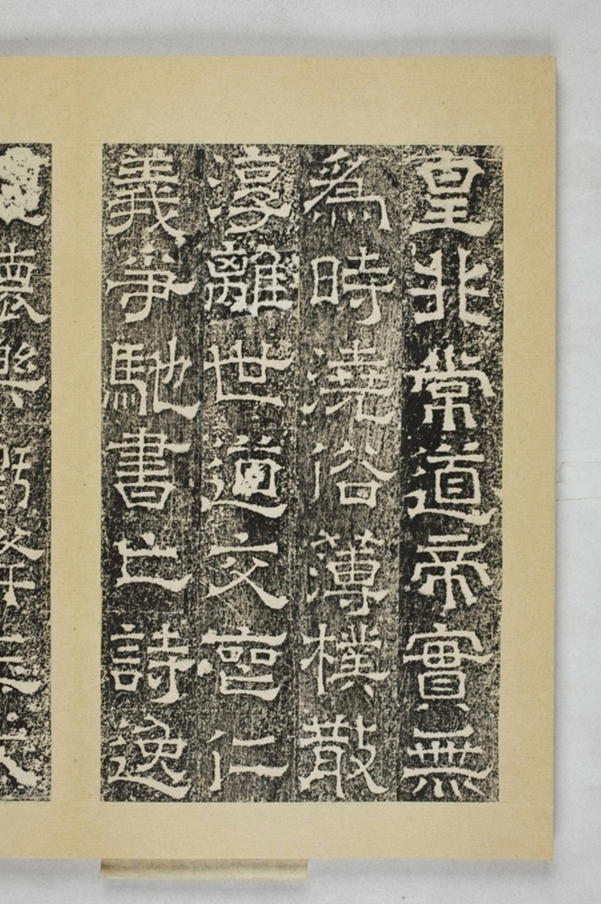 皇非常道帝實無
為時澆俗薄樸散
淳離世道交喪仁
義爭馳書亡詩逸
禮壞樂虧